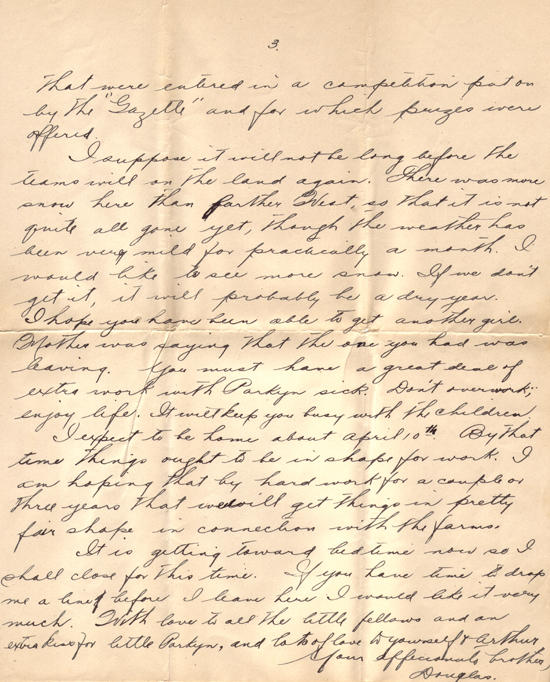 3.
that were entered in a competition put on
by the "Gazette" and for which prizes were
offered.
I suppose it will not be long before the
teams will on the land again. There was more
snow here than farther West, so that it is not
quite all gone yet, though the weather has
been very mild for practically a month. I
would like to see more snow. If we don't
get it, it will probably be a dry year.
I hope you have been able to get another girl.
Mother was saying that the one you had was
leaving. You must have a great deal of
extra work with Parkyn sick. Don't overwork;
enjoy life. It will keep you busy with the children.
I expect to be home about April 10th. By that
time things ought to be in shape for work. I
am hoping that by hard work for a couple or
three years that we will get things in pretty
fair shape in connection with the farms.
It is getting toward bedtime now so I
shall close for this time. If you have time to drop
me a line before I leave here I would like it very
much. With love to all the little fellows and an
extra kiss for little Parkyn, and lots of love to yourself & Arthur,
Your affectionate brother,
Douglas.